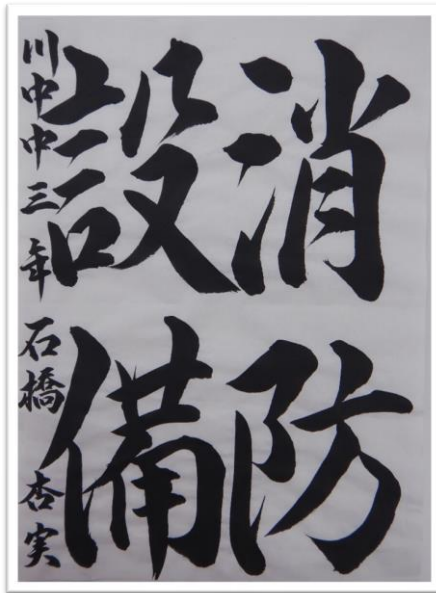 消防
設備
川中中三年 石橋 杏実